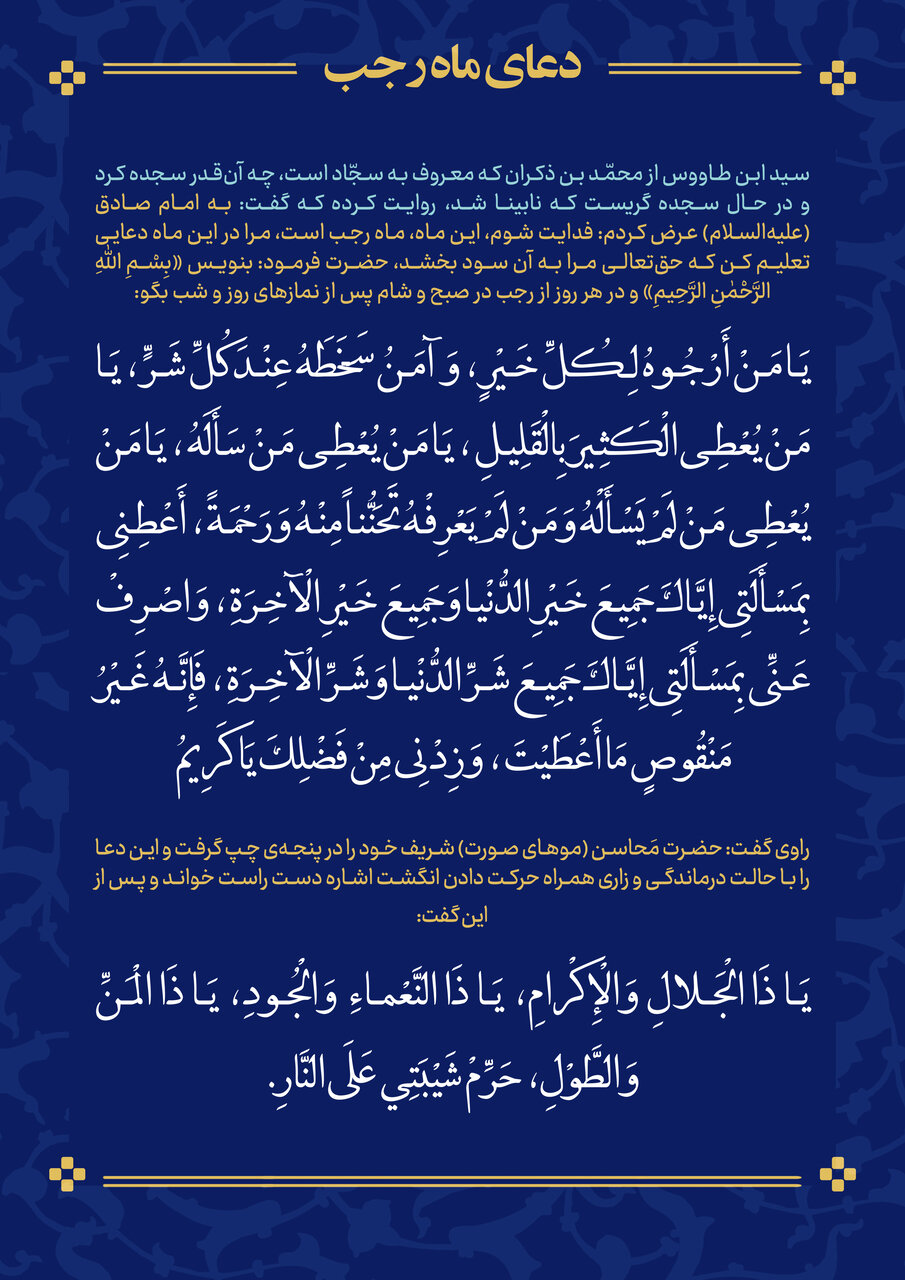 دعای ماه رجب
سید ابن طاووس از محمّد بن ذکران که معروف به سجّاد است، چه آن‌قدر سجده کرد
و در حال سجده گریست که نابینا شد، روایت کرده که گفت: به امام صادق
(علیه‌السلام) عرض کردم: فدایت شوم، این ماه، ماه رجب است، مرا در این ماه دعایی
تعلیم کن که حق‌تعالی مرا به آن سود بخشد، حضرت فرمود: بنویس «بِسْمِ اللهِ
الرَّحْمٰنِ الرَّحِیمِ» و در هر روز از رجب در صبح و شام پس از نمازهای روز و شب بگو:
یَا مَنْ أَرْجُوهُ لِکُلِّ خَیْرٍ، وَ آمَنُ سَخَطَهُ عِنْدَ کُلِّ شَرٍّ، یَا
مَنْ یُعْطِی الْکَثِیرَ بِالْقَلِیلِ، یَا مَنْ یُعْطِی مَنْ سَأَلَهُ، یَا مَنْ
یُعْطِی مَنْ لَمْ یَسْأَلْهُ وَ مَنْ لَمْ یَعْرِفْهُ تَحَنُّناً مِنْهُ وَ رَحْمَةً، أَعْطِنِی
بِمَسْأَلَتِی إِیَّاکَ جَمِیعَ خَیْرِ الدُّنْیا وَ جَمِیعَ خَیْرِ الْآخِرَةِ، وَ اصْرِفْ
عَنِّی بِمَسْأَلَتِی إِیَّاکَ جَمِیعَ شَرِّ الدُّنْیا وَ شَرِّ الْآخِرَةِ، فَإِنَّهُ غَیْرُ
مَنْقُوصٍ مَا أَعْطَیْتَ، وَ زِدْنِی مِنْ فَضْلِكَ یَا کَرِیمُ
راوی گفت: حضرت مَحاسن (موهای صورت) شریف خود را در پنجه‌ی چپ گرفت و این دعا
را با حالت درماندگی و زاری همراه حرکت دادن انگشت اشاره دست راست خواند و پس از
این گفت:
یَا ذَا الْجَلالِ وَالْإِکْرامِ، یَا ذَا النَّعْماءِ وَالْجُودِ، یَا ذَا الْمَنِّ
وَالطَّوْلِ، حَرِّمْ شَیْبَتِي عَلَی النَّارِ.